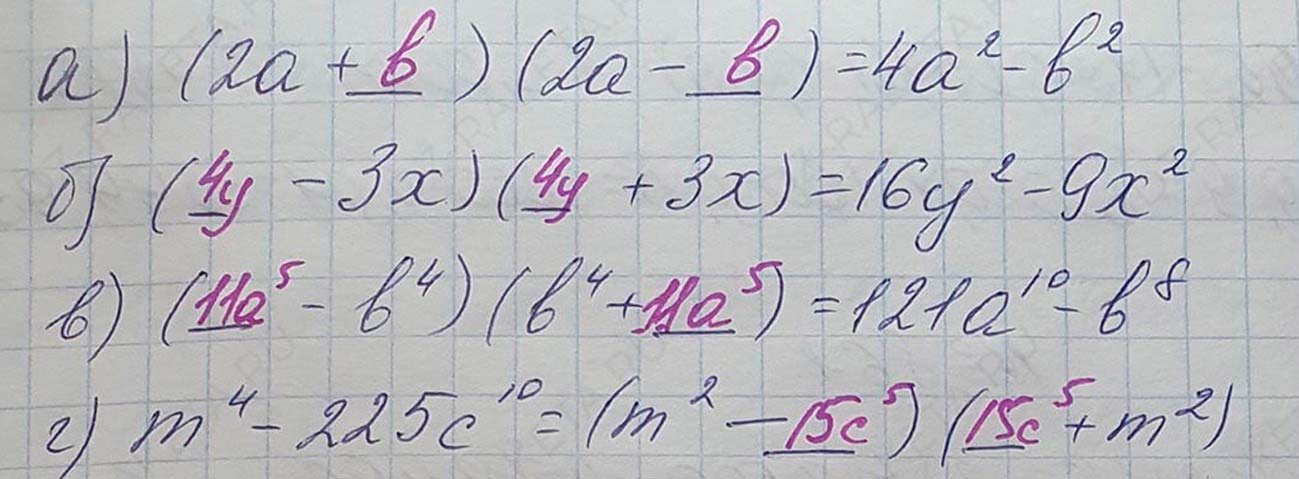 а) (2a + b) (2a - b) = 4a² - b²
б) (4y - 3x) (4y + 3x) = 16y² - 9x²
в) (11a⁵ - b⁴) (b⁴ + 11a⁵) = 121a¹⁰ - b⁸
г) m⁴ - 225c¹⁰ = (m² - 15c⁵) (15c⁵ + m²)